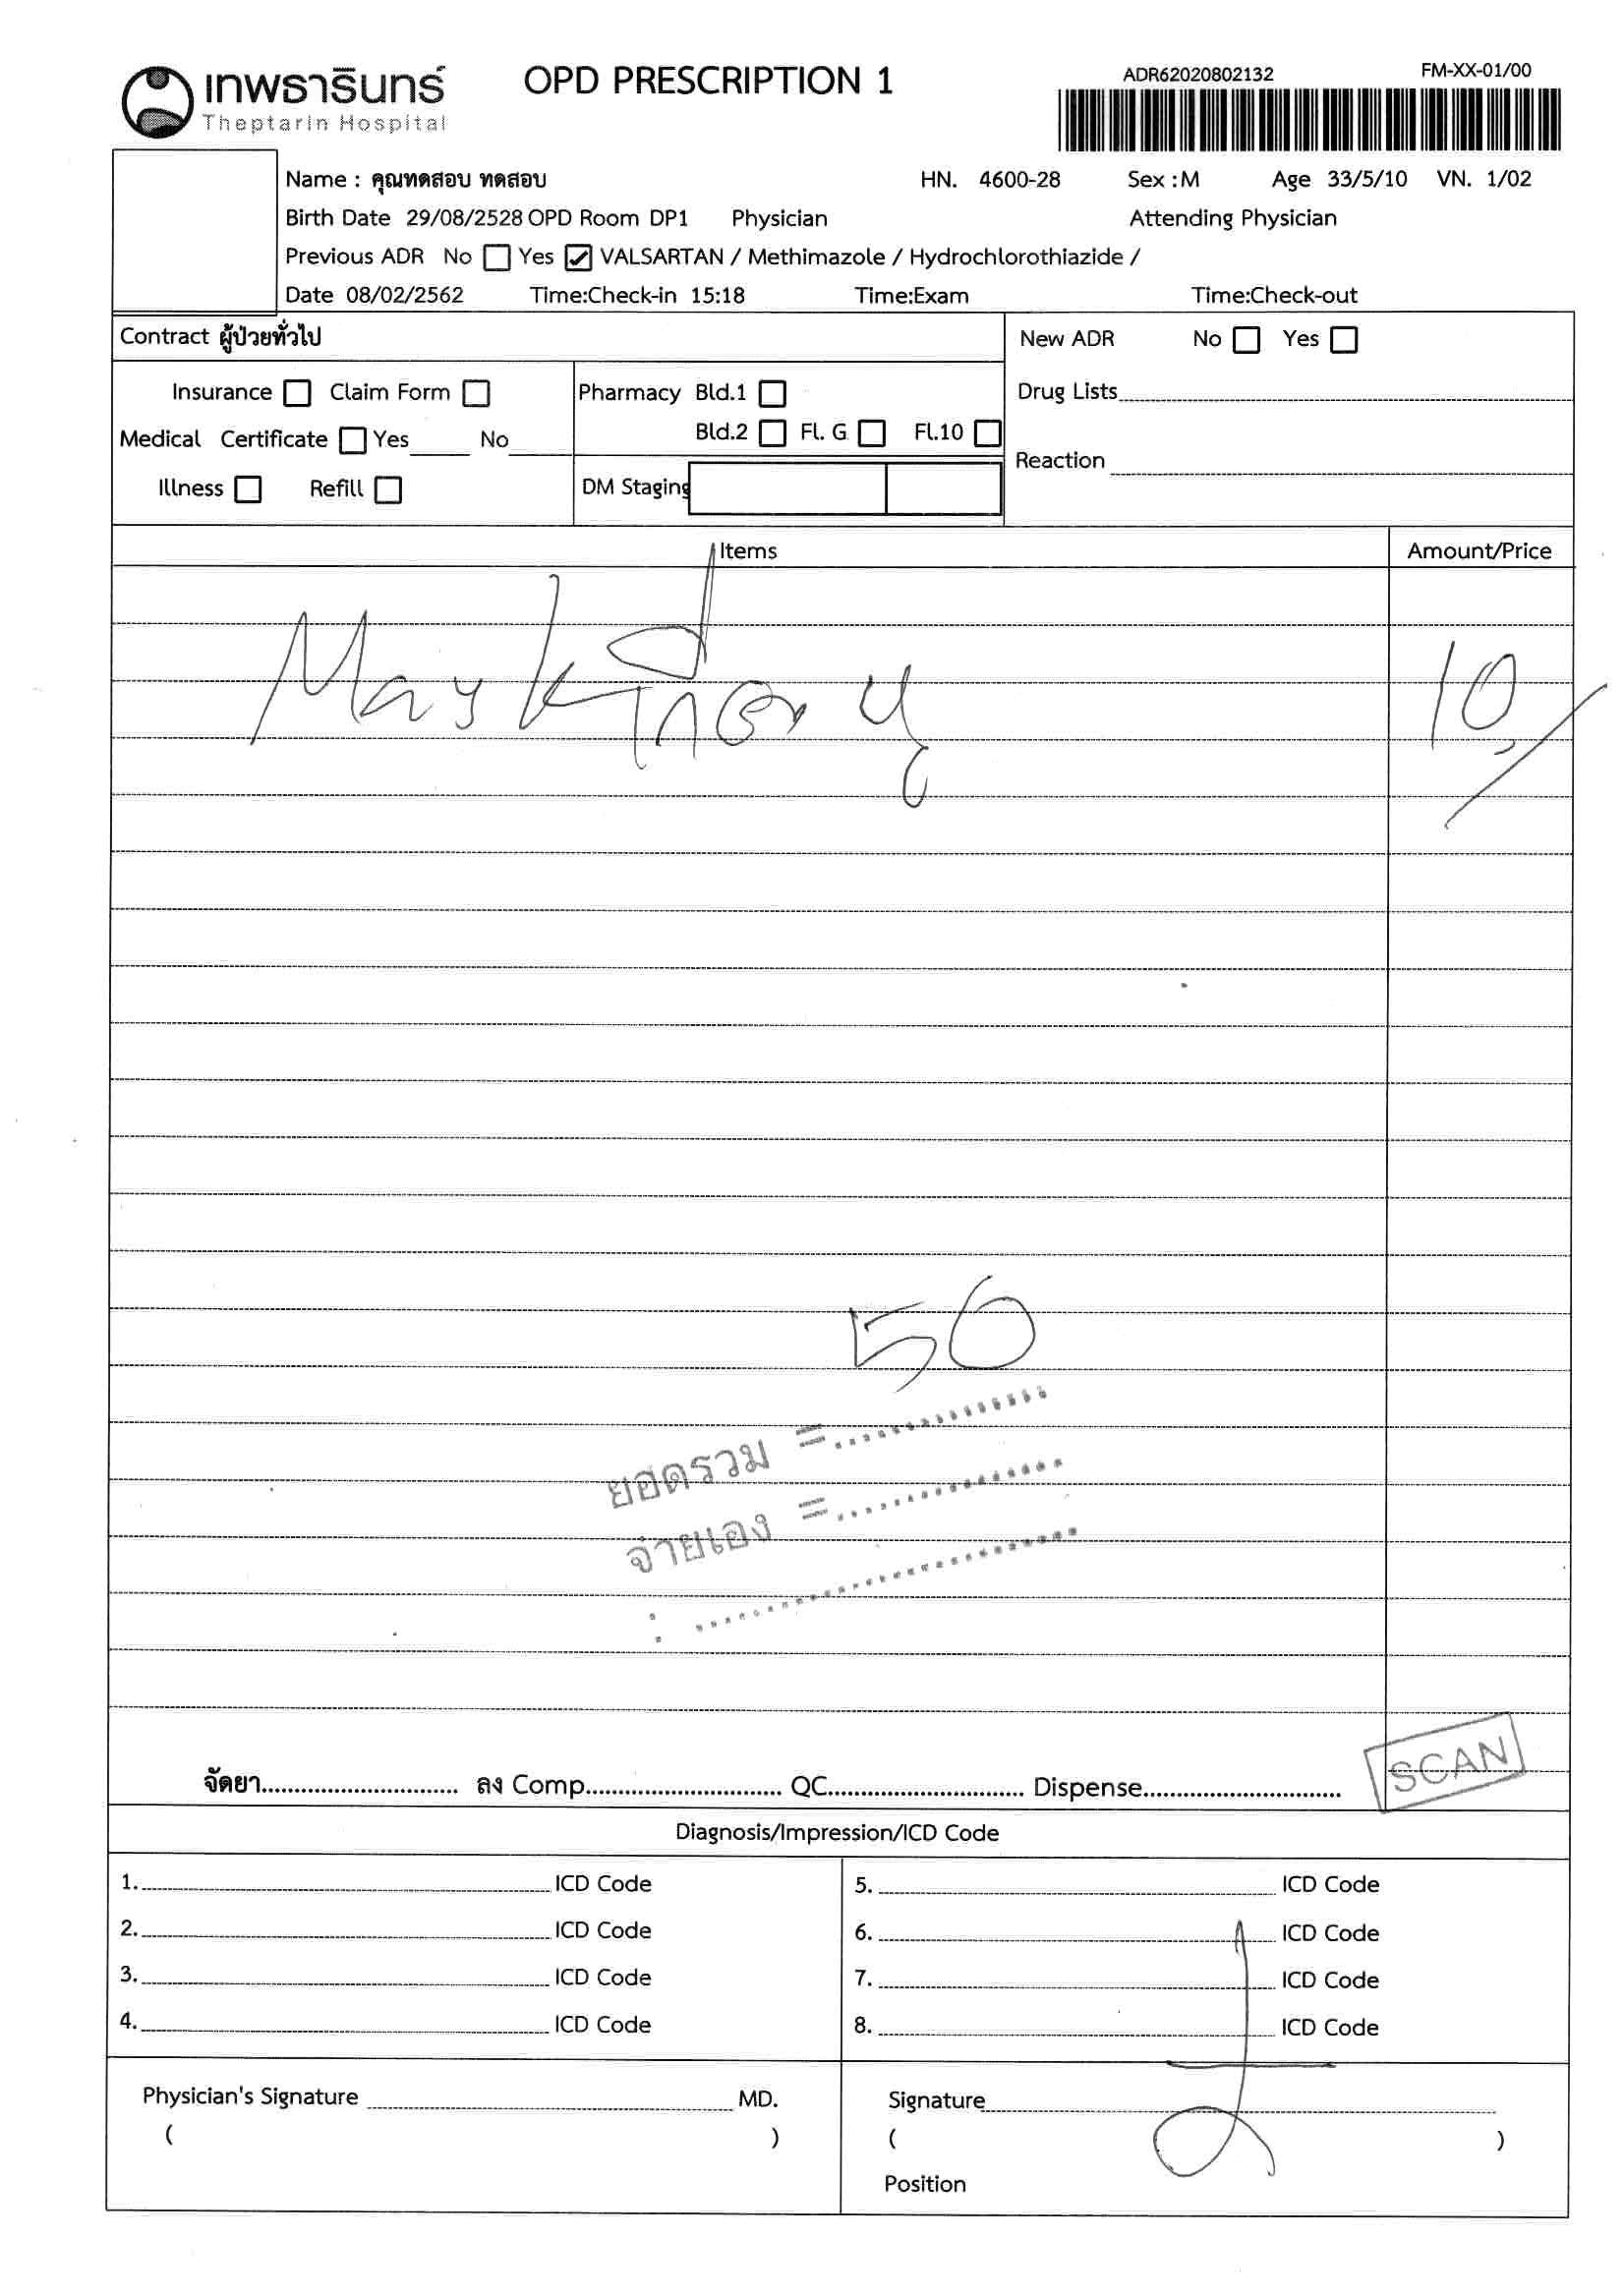 เทพธารินทร์
Theptarin Hospital
OPD PRESCRIPTION 1
ADR62020802132
FM-XX-01/00
Name : คุณทดสอบ ทดสอบ HN. 4600-28 Sex : M Age 33/5/10 VN. 1/02
Birth Date 29/08/2528 OPD Room DP1 Physician Attending Physician
Previous ADR No ☐ Yes ☑ VALSARTAN / Methimazole / Hydrochlorothiazide /
Date 08/02/2562 Time:Check-in 15:18 Time:Exam Time:Check-out
Contract ผู้ป่วยทั่วไป
Insurance ☐ Claim Form ☐
Medical Certificate ☐ Yes____ No____
Illness ☐ Refill ☐
Pharmacy Bld.1 ☐
Bld.2 ☐ Fl. G ☐ Fl.10 ☐
DM Staging
New ADR No ☐ Yes ☐
Drug Lists
Reaction
Items Amount/Price
Mask 10
50
ยอดรวม =..............
จ่ายเอง =..............
: ........................
SCAN
จัดยา............................ ลง Comp............................ QC............................ Dispense............................
Diagnosis/Impression/ICD Code
1. ICD Code
2. ICD Code
3. ICD Code
4. ICD Code
5. ICD Code
6. ICD Code
7. ICD Code
8. ICD Code
Physician's Signature MD.
( )
Signature
( )
Position